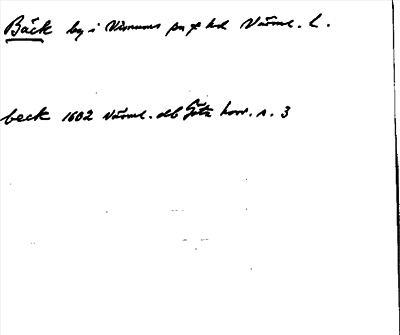 Bäck by i Visnums sn o hd Värml. L.
beck 1602 Värml. älb Göta hovr. s. 3